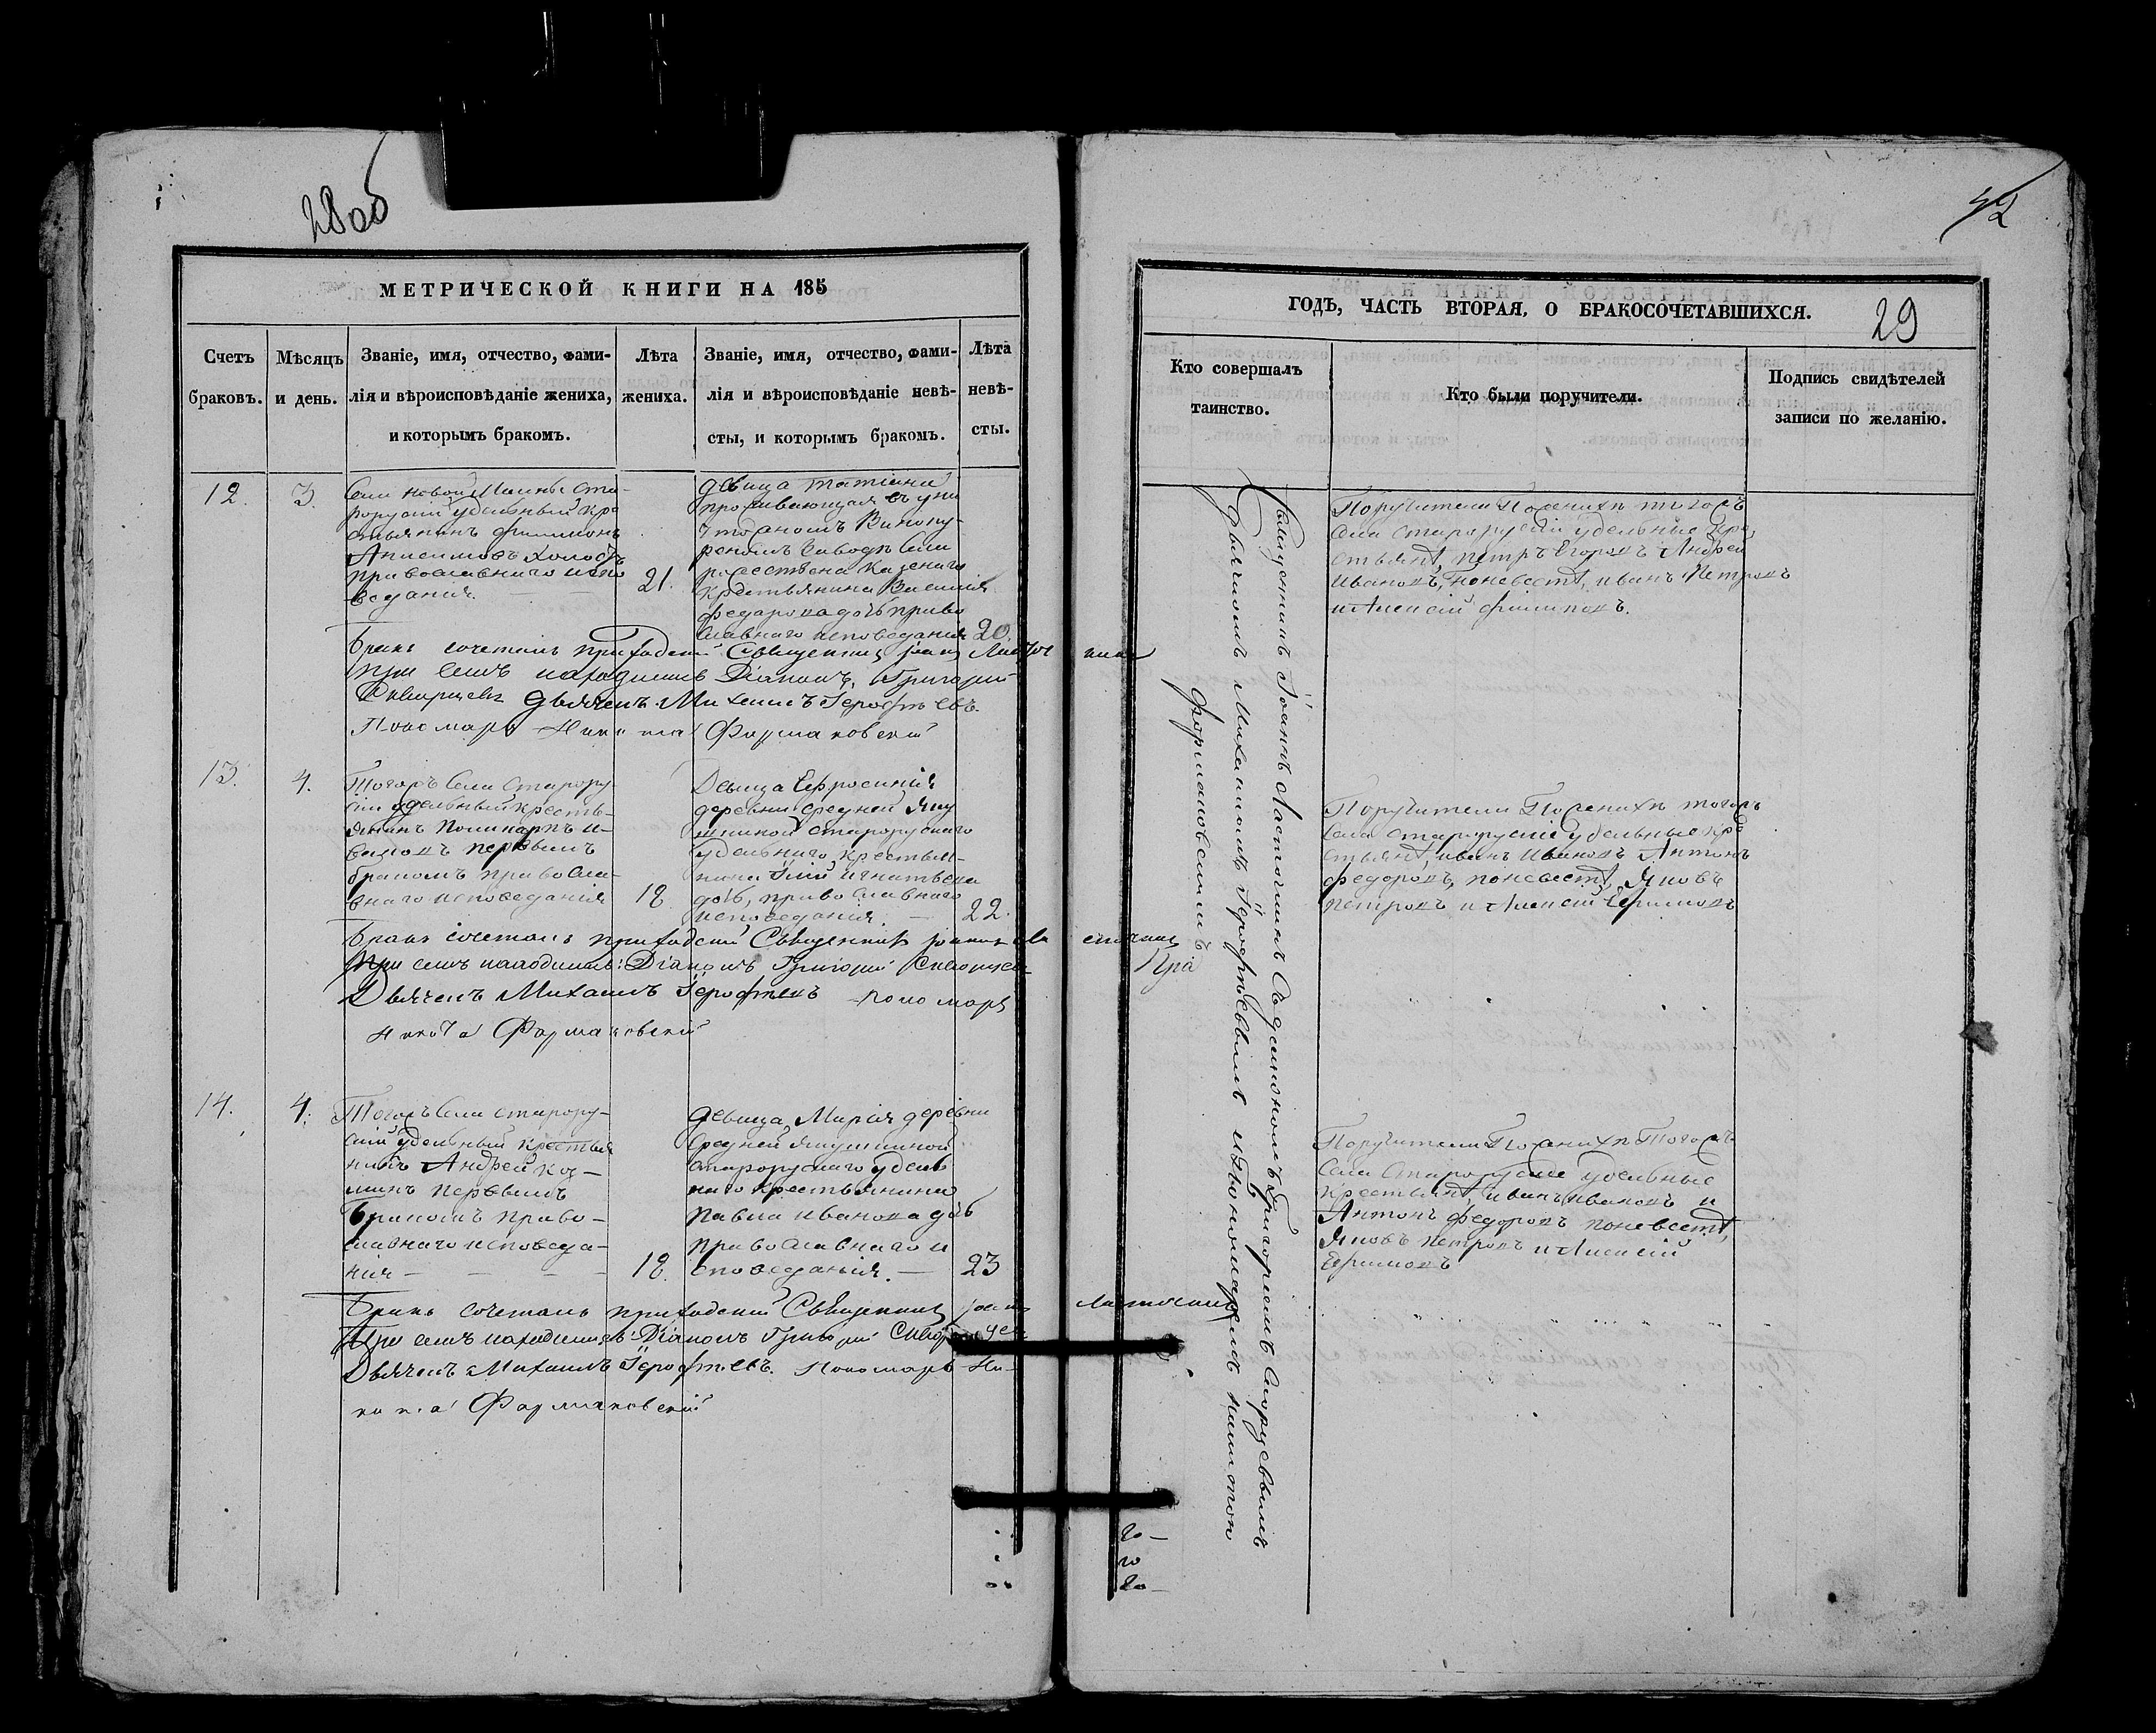 28об
МЕТРИЧЕСКОЙ КНИГИ НА 185
Счетъ браковъ.
Мѣсяцъ и день.
Званіе, имя, отчество, фами-
лія и вѣроисповѣданіе жениха,
и которымъ бракомъ.
Лѣта
жениха.
Званіе, имя, отчество, фами-
лія и вѣроисповѣданіе невѣ-
сты, и которымъ бракомъ.
Лѣта
невѣ-
сты.
12. 3.
Села новой Маины Ста-
роруской удельный кре
стьянинъ Филимонъ
Анисимовъ холостъ
православнаго испо
веданія. 21.
девица Татіана
проживающая въ
Виноку-
ренномъ заводѣ Села
рождествена казеннаго
крестьянина Василія
Федорова дочь право
славнаго исповеданія 20.
Бракъ сочеталъ приходскій Священникъ Іоаннъ Ласточкинъ
При семъ находились Діаконъ Григорій
Скворцевъ Дьячекъ Михаилъ Іерофѣевъ.
Пономарь Никита Формаковскій
13. 4.
Тогожъ Села Старору-
скій удельный кресть-
янинъ Поликарпъ И-
вановъ первымъ
бракомъ правосла-
внаго исповеданія 18
Девица Ефросинія
деревни Средней Яку
шкиной старорускаго
удельнаго крестьян-
ина Игнатьева
дочь, православнаго
исповеданія. — 22.
Бракъ сочеталъ приходскій Священникъ Іоаннъ Ласточкинъ
При семъ находились: Діаконъ Григорій Скворцевъ
Дьячекъ Михаилъ Іерофѣевъ пономарь
Никита Формаковскій
14. 4.
Тогожъ Села Старору-
скій удельный крестья
нинъ Андрей Коз-
минъ первымъ
Бракомъ право-
славнаго исповеда-
нія — 18.
девица Марія деревни
Средней Якушкиной
старорускаго удель
наго крестьянина
Павла Иванова дочь
православнаго и
споведанія. — 23
Бракъ сочеталъ приходскій Священникъ Іоаннъ Ласточкинъ
При семъ находились: Діаконъ Григорій Скворцевъ
Дьячекъ Михаилъ Іерофѣевъ. Пономарь Ни-
кита Формаковскій
42
ГОДЪ, ЧАСТЬ ВТОРАЯ, О БРАКОСОЧЕТАВШИХСЯ.
29
Кто совершалъ
таинство.
Кто были поручители.
Подпись свидѣтелей
записи по желанію.
Священникъ Іоаннъ Ласточкинъ съ діакономъ Григоріемъ Скорцевымъ
Дьячкомъ Михаиломъ Іерофѣевымъ и Пономаремъ Никитою
Формаковскимъ
Поручители По женихѣ тогожъ
Села старорускій удельные кре
стьянѣ, Петръ Егоровъ Андрей
Ивановъ, по невестѣ, иванъ Петровъ
и Алексій Филиповъ.
Поручители По женихѣ тогожъ
Села старорускіе удельные кре
стьянѣ, иванъ Ивановъ Антонъ
Федоровъ, по невестѣ, Яковъ
Петровъ и Алексій Ефимовъ
Поручители По женихѣ Тогожъ
Села Старорускіе удельные
Крестьянѣ, иванъ ивановъ и
Антонъ Федоровъ по невестѣ,
Яковъ Петровъ и Алексій
Ефимовъ